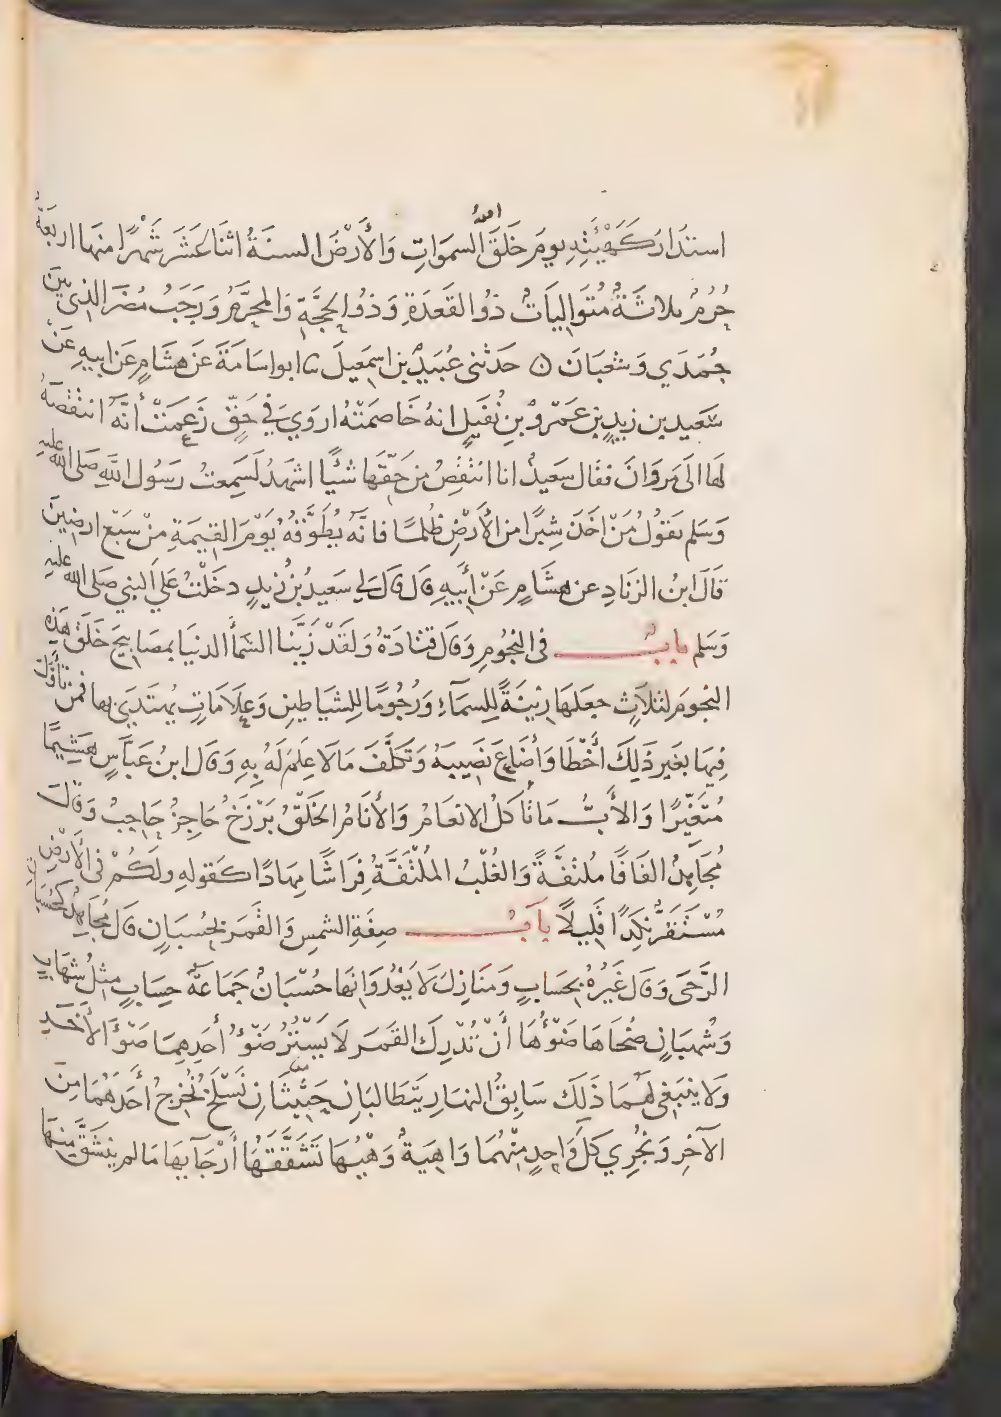 استدار كهيئته يوم خلق الله السموات والأرض السنة اثنا عشر شهرا منها اربعة
حرم ثلاثة متواليات ذو القعدة وذو الحجة والمحرم ورجب مضر الذي بين
جمدي وشعبان حدثنى عبيد بن اسمعيل ثنا ابو اسامة عن هشام عن ابيه عن
سعيد بن زيد بن عمرو بن نفيل انه خاصمته اروي في حق زعمت أنه انتقصه
لها الى مروان فقال سعيد انا انتقص من حقها شئا اشهد لسمعت رسول الله صلى الله عليه
وسلم يقول من اخذ شبرا من الأرض ظلما فانه يطوقه يوم القيمة من سبع ارضين
قال ابن الزناد عن هشام عن أبيه قال قال لي سعيد بن زيد دخلت علي النبي صلى الله عليه
وسلم باب فى النجوم وقال قتادة ولقد زينا السمأ الدنيا بمصابيح خلق هذه
النجوم لثلاث جعلها زينة للسماء ورجوما للشياطين وعلامات يهتدي بها فمن تأول
فيها بغير ذلك أخطا وأضاع نصيبه وتكلف مالا علم له به وقال ابن عباس هشيما
متغيرا والأب ما تأكل الانعام والأنام الخلق برزخ حاجز حاجب وقال
مجاهد الفافا ملتفة والغلب الملتفة فراشا مهادا كقوله ولكم فى الأرض
مستقر نكدا قليلا باب صفة الشمس والقمر بحسبان قال مجاهد كحسبان
الرحى وقال غيره بحساب ومنازل لا يعدوانها حسبان جماعة حساب مثل شهاب
وشهبان ضحاها ضوؤها أن تدرك القمر لا يستر ضوؤ أحدهما ضوؤ الأخر
ولا ينبغى لهما ذلك سابق النهار يتطالبان حثيثان نسلخ نخرج أحدهما من
الآخر ونجري كل واحد منهما واهية وهيها تشققها أرجآيها مالم ينشق منها